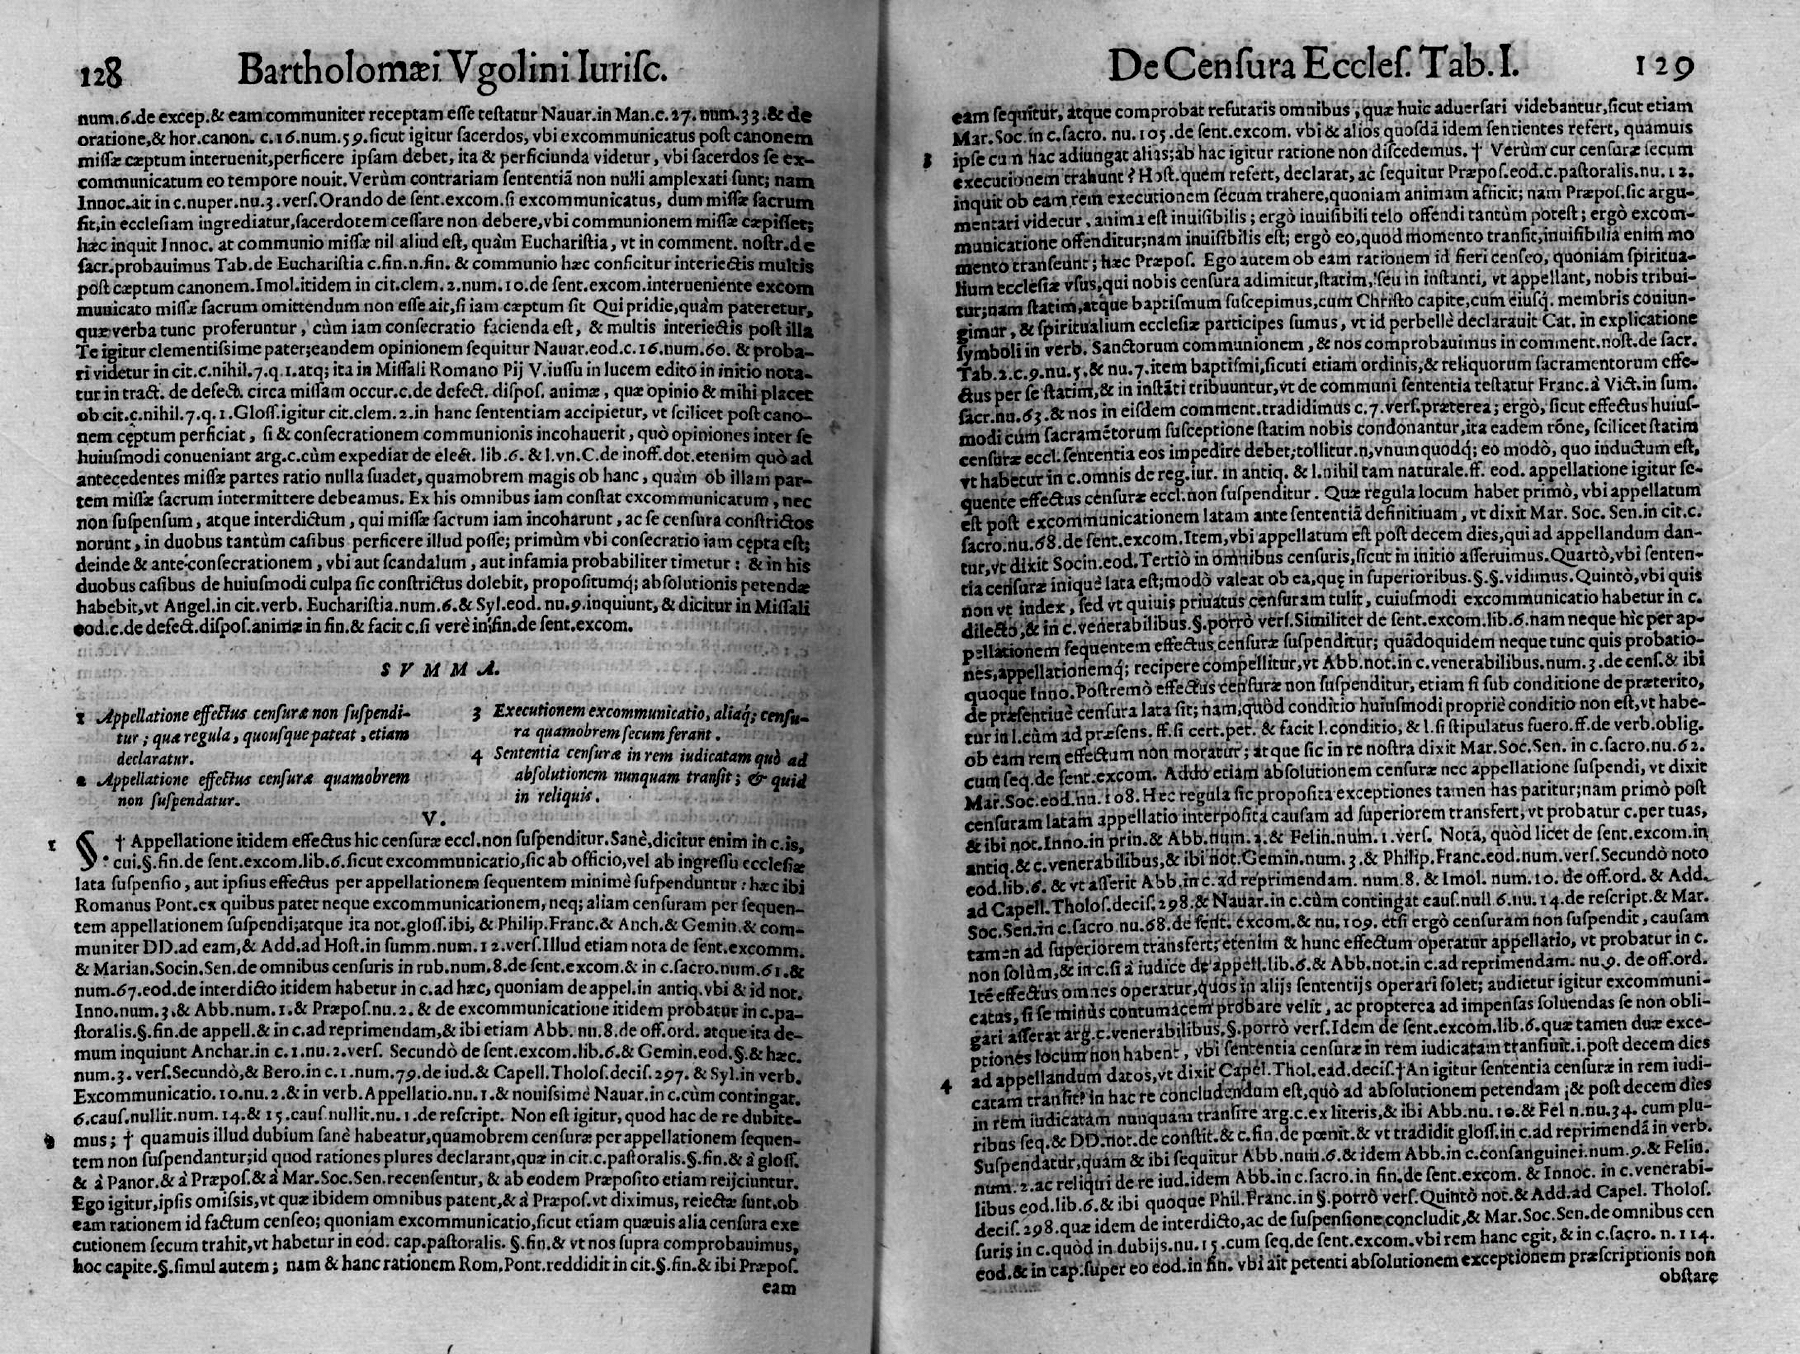 128 Bartholomæi Vgolini Iurisc.
num.6.de excep.& eam communiter receptam esse testatur Nauar.in Man.c.27.num.33.& de
oratione,& hor.canon. c.16.num.59.sicut igitur sacerdos, vbi excommunicatus post canonem
missæ cæptum interuenit,perficere ipsam debet, ita & perficiunda videtur, vbi sacerdos se ex-
communicatum eo tempore nouit.Verùm contrariam sententiã non nulli amplexati sunt; nam
Innoc.ait in c.nuper.nu.3.vers.Orando de sent.excom.si excommunicatus, dum missæ sacrum
fit,in ecclesiam ingrediatur,sacerdotem cessare non debere,vbi communionem missæ cæpisset;
hæc inquit Innoc. at communio missæ nil aliud est, quàm Eucharistia, vt in comment. nostr.de
sacr.probauimus Tab.de Eucharistia c.fin.n.fin. & communio hæc conficitur interiectis multis
post cæptum canonem.Imol.itidem in cit.clem.2.num.10.de sent.excom.interueniente excom
municato missæ sacrum omittendum non esse ait,si iam cæptum sit Qui pridie,quàm pateretur,
quæ verba tunc proferuntur, cùm iam consecratio facienda est, & multis interiectis post illa
Te igitur clementissime pater;eandem opinionem sequitur Nauar.eod.c.16.num.60. & proba-
ri videtur in cit.c.nihil.7.q.1.atq; ita in Missali Romano Pij V.iussu in lucem edito in initio nota-
tur in tract. de defect. circa missam occur.c.de defect. dispos. animæ, quæ opinio & mihi placet
ob cit.c.nihil.7.q.1.Gloss.igitur cit.clem.2.in hanc sententiam accipietur, vt scilicet post cano-
nem cęptum perficiat, si & consecrationem communionis incohauerit, quò opiniones inter se
huiusmodi conueniant arg.c.cùm expediat de elect. lib.6. & l.vn.C.de inoff.dot.etenim quò ad
antecedentes missæ partes ratio nulla suadet, quamobrem magis ob hanc, quàm ob illam par-
tem missæ sacrum intermittere debeamus. Ex his omnibus iam constat excommunicatum, nec
non suspensum, atque interdictum, qui missæ sacrum iam incoharunt, ac se censura constrictos
norunt, in duobus tantùm casibus perficere illud posse; primùm vbi consecratio iam cępta est;
deinde & ante consecrationem, vbi aut scandalum, aut infamia probabiliter timetur: & in his
duobus casibus de huiusmodi culpa sic constrictus dolebit, propositumq; absolutionis petendæ
habebit,vt Angel.in cit.verb. Eucharistia.num.6.& Syl.eod. nu.9.inquiunt, & dicitur in Missali
eod.c.de defect.dispos.animæ in fin.& facit c.si verè in fin.de sent.excom.
SVMMA.
1 Appellatione effectus censuræ non suspendi-
tur; quæ regula, quousque pateat, etiam
declaratur.
2 Appellatione effectus censuræ quamobrem
non suspendatur.
3 Executionem excommunicatio, aliaq; censu-
ra quamobrem secum ferant.
4 Sententia censuræ in rem iudicatam quò ad
absolutionem nunquam transit; & quid
in reliquis.
V.
1 §. † Appellatione itidem effectus hic censuræ eccl.non suspenditur.Sanè,dicitur enim in c.is,
cui.§.fin.de sent.excom.lib.6.sicut excommunicatio,sic ab officio,vel ab ingressu ecclesiæ
lata suspensio, aut ipsius effectus per appellationem sequentem minimè suspenduntur: hæc ibi
Romanus Pont.ex quibus patet neque excommunicationem, neq; aliam censuram per sequen-
tem appellationem suspendi;atque ita not.gloss.ibi, & Philip.Franc.& Anch.& Gemin.& com-
muniter DD.ad eam,& Add.ad Host.in summ.num.12.vers.Illud etiam nota de sent.excomm.
& Marian.Socin.Sen.de omnibus censuris in rub.num.8.de sent.excom.& in c.sacro.num.61.&
num.67.eod.de interdicto itidem habetur in c.ad hæc, quoniam de appel.in antiq.vbi & id not.
Inno.num.3.& Abb.num.1.& Præpos.nu.2.& de excommunicatione itidem probatur in c.pa-
storalis.§.fin.de appell.& in c.ad reprimendam,& ibi etiam Abb. nu.8.de off.ord. atque ita de-
mum inquiunt Anchar.in c.1.nu.2.vers. Secundò de sent.excom.lib.6.& Gemin.eod.§.& hæc.
num.3. vers.Secundò,& Bero.in c.1.num.79.de iud.& Capell.Tholos.decis.297.& Syl.in verb.
Excommunicatio.10.nu.2.& in verb.Appellatio.nu.1.& nouissimè Nauar.in c.cùm contingat.
6.caus.nullit.num.14.& 15.caus nullit.nu.1.de rescript. Non est igitur, quod hac de re dubite-
mus; † quamuis illud dubium sanè habeatur,quamobrem censuræ per appellationem sequen-
tem non suspendantur;id quod rationes plures declarant,quæ in cit.c.pastoralis.§.fin.& à gloss.
& à Panor.& à Præpos.& à Mar.Soc.Sen.recensentur, & ab eodem Præposito etiam reijciuntur.
Ego igitur,ipsis omissis,vt quæ ibidem omnibus patent,& à Præpos.vt diximus, reiectæ sunt,ob
eam rationem id factum censeo; quoniam excommunicatio,sicut etiam quæuis alia censura exe
cutionem secum trahit,vt habetur in eod. cap.pastoralis. §.fin.& vt nos supra comprobauimus,
hoc capite.§.simul autem; nam & hanc rationem Rom.Pont.reddidit in cit.§.fin.& ibi Præpos.
eam
De Censura Eccles. Tab.I. 129
eam sequitur, atque comprobat refutatis omnibus, quæ huic aduersari videbantur,sicut etiam
Mar.Soc.in c.sacro. nu.105.de sent.excom. vbi & alios quosdã idem sentientes refert, quamuis
3 ipse cum hac adiungat alias;ab hac igitur ratione non discedemus. † Verùm cur censuræ secum
executionem trahunt? Host.quem refert, declarat, ac sequitur Præpos.eod.c.pastoralis.nu.12.
inquit ob eam rem executionem secum trahere,quoniam animam afficit; nam Præpos.sic argu-
mentari videtur, anima est inuisibilis; ergò inuisibili telo offendi tantùm potest; ergò excom-
municatione offenditur;nam inuisibilis est; ergò eo,quod momento transit,inuisibilia enim mo
mento transeunt; hæc Præpos. Ego autem ob eam rationem id fieri censeo, quoniam spiritua-
lium ecclesiæ vsus,qui nobis censura adimitur,statim, seu in instanti, vt appellant, nobis tribui-
tur;nam statim,atque baptismum suscepimus,cum Christo capite,cum eiusq. membris coniun-
gimur, & spiritualium ecclesiæ participes sumus, vt id perbellè declarauit Cat. in explicatione
symboli in verb. Sanctorum communionem, & nos comprobauimus in comment.nost.de sacr.
Tab.2.c.9.nu.5.& nu.7.item baptismi,sicuti etiam ordinis,& reliquorum sacramentorum effe-
ctus per se statim,& in instãti tribuuntur,vt de communi sententia testatur Franc.à Vict.in sum.
sacr.nu.63.& nos in eisdem comment.tradidimus c.7.vers.præterea; ergò, sicut effectus huius-
modi cùm sacramẽtorum susceptione statim nobis condonantur,ita eadem rõne, scilicet statim
censuræ eccl.sententia eos impedire debet;tollitur.n,vnumquodq; eo modò, quo inductum est,
vt habetur in c.omnis de reg.iur. in antiq. & l.nihil tam naturale.ff. eod. appellatione igitur se-
quente effectus censuræ eccl.non suspenditur. Quæ regula locum habet primò, vbi appellatum
est post excommunicationem latam ante sententiã definitiuam, vt dixit Mar. Soc. Sen.in cit.c.
sacro.nu.68.de sent.excom. Item,vbi appellatum est post decem dies,qui ad appellandum dan-
tur,vt dixit Socin.eod.Tertiò in omnibus censuris,sicut in initio asseruimus.Quartò,vbi senten-
tia censuræ iniquè lata est;modò valeat ob ea,quę in superioribus.§.§.vidimus.Quintò,vbi quis
non vt iudex, sed vt quiuis priuatus censuram tulit, cuiusmodi excommunicatio habetur in c.
dilecto,& in c.venerabilibus.§.porrò vers.Similiter de sent.excom.lib.6.nam neque hic per ap-
pellationem sequentem effectus censuræ suspenditur; quãdoquidem neque tunc quis probatio-
nes,appellationemq; recipere compellitur,vt Abb.not.in c.venerabilibus.num.3.de cens.& ibi
quoque Inno.Postremò effectus censuræ non suspenditur, etiam si sub conditione de præterito,
de præsentiue censura lata sit; nam,quòd conditio huiusmodi propriè conditio non est,vt habe-
tur in l.cùm ad præsens. ff.si cert.pet. & facit l.conditio, & l.si stipulatus fuero.ff.de verb.oblig.
ob eam rem effectum non moratur; atque sic in re nostra dixit Mar.Soc.Sen. in c.sacro.nu.62.
cum seq.de sent.excom. Addo etiam absolutionem censuræ nec appellatione suspendi, vt dixit
Mar.Soc.eod.nu.108.Hæc regula sic proposita exceptiones tamen has patitur;nam primò post
censuram latam appellatio interposita causam ad superiorem transfert, vt probatur c.per tuas,
& ibi not.Inno.in prin.& Abb.num.2.& Felin.num.1.vers. Nota, quòd licet de sent.excom.in
antiq.& c.venerabilibus,& ibi not.Gemin.num.3.& Philip.Franc.eod.num.vers.Secundò noto
eod.lib.6. & vt asserit Abb.in c.ad reprimendam. num.8. & Imol. num.10. de off.ord. & Add.
ad Capell.Tholos.decis.298.& Nauar.in c.cùm contingat caus.null 6.nu.14.de rescript.& Mar.
Soc.Sen.in c.sacro nu.68.de sent. excom.& nu.109. etsi ergò censuram non suspendit, causam
tamen ad superiorem transfert; etenim & hunc effectum operatur appellatio, vt probatur in c.
non solùm,& in c.si à iudice de appell.lib.6.& Abb.not.in c.ad reprimendam. nu.9. de off.ord.
Itẽ effectus omnes operatur,quos in alijs sententijs operari solet; audietur igitur excommuni-
catus, si se minùs contumacem probare velit, ac propterea ad impensas soluendas se non obli-
gari asserat arg.c.venerabilibus,§.porrò vers.Idem de sent.excom.lib.6.quæ tamen duæ exce-
ptiones locum non habent, vbi sententia censuræ in rem iudicatam transiuit.i.post decem dies
4 ad appellandum datos,vt dixit Capel.Thol.ead.decis.†An igitur sententia censuræ in rem iudi-
catam transit? in hac re concludendum est,quò ad absolutionem petendam ,& post decem dies
in rem iudicatam nunquam transire arg.c.ex literis,& ibi Abb.nu.10.& Fel n.nu.34. cum plu-
ribus seq.& DD.not.de constit.& c.fin.de pœnit.& vt tradidit gloss.in c.ad reprimendã in verb.
Suspendatur,quam & ibi sequitur Abb.num.6.& idem Abb.in c.consanguinei.num.9.& Felin.
num.2.ac reliqui de re iud.idem Abb.in c.sacro.in fin.de sent.excom. & Innoc. in c.venerabi-
libus eod.lib.6.& ibi quoque Phil.Franc.in §.porrò vers.Quintò not.& Add.ad Capel. Tholos.
decis.298.quæ idem de interdicto,ac de suspensione concludit,& Mar.Soc.Sen.de omnibus cen
suris in c.quòd in dubijs.nu.15.cum seq.de sent.excom.vbi rem hanc egit, & in c.sacro. n.114.
eod.& in cap.super eo eod.in fin. vbi ait petenti absolutionem exceptionem præscriptionis non
obstare